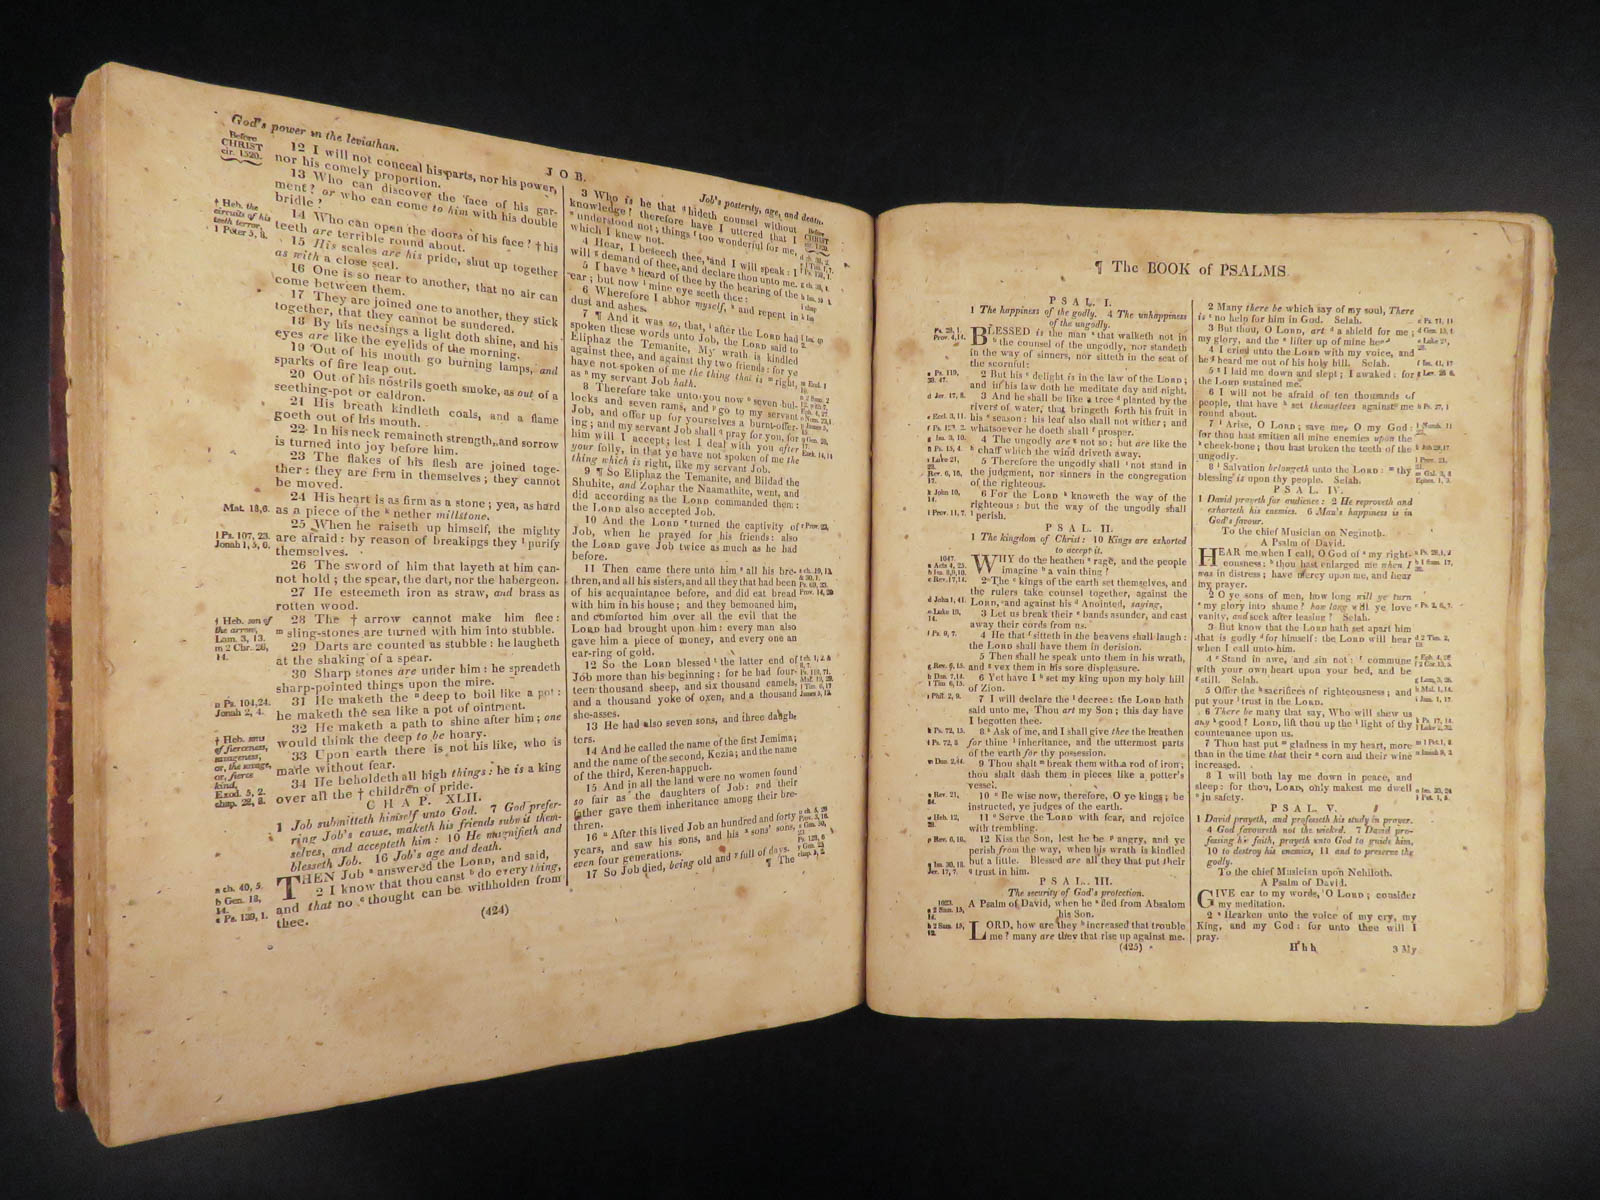 God's power in the leviathan.
JOB.
Job's posterity, age, and death.
Before
CHRIST
cir. 1520.
12 I will not conceal his parts, nor his power,
nor his comely proportion.
13 Who can discover the face of his gar-
ment? or who can come to him with his double
bridle?
14 Who can open the doors of his face? † his
teeth are terrible round about.
15 His scales are his pride, shut up together
as with a close seal.
16 One is so near to another, that no air can
come between them.
17 They are joined one to another, they stick
together, that they cannot be sundered.
18 By his neesings a light doth shine, and his
eyes are like the eyelids of the morning.
19 Out of his mouth go burning lamps, and
sparks of fire leap out.
20 Out of his nostrils goeth smoke, as out of a
seething-pot or caldron.
21 His breath kindleth coals, and a flame
goeth out of his mouth.
22 In his neck remaineth strength, and sorrow
is turned into joy before him.
23 The flakes of his flesh are joined toge-
ther: they are firm in themselves; they cannot
be moved.
24 His heart is as firm as a stone; yea, as hard
as a piece of the k nether millstone.
25 When he raiseth up himself, the mighty
are afraid: by reason of breakings they l purify
themselves.
26 The sword of him that layeth at him can-
not hold; the spear, the dart, nor the habergeon.
27 He esteemeth iron as straw, and brass as
rotten wood.
28 The † arrow cannot make him flee:
m sling-stones are turned with him into stubble.
29 Darts are counted as stubble: he laugheth
at the shaking of a spear.
30 Sharp stones are under him: he spreadeth
sharp-pointed things upon the mire.
31 He maketh the n deep to boil like a pot:
he maketh the sea like a pot of ointment.
32 He maketh a path to shine after him; one
would think the deep to be hoary.
33 Upon earth there is not his like, who is
made without fear.
34 He beholdeth all high things: he is a king
over all the † children of pride.
CHAP. XLII.
1 Job submitteth himself unto God. 7 God prefer-
ring Job's cause, maketh his friends submit them-
selves, and accepteth him: 10 He magnifieth and
blesseth Job. 16 Job's age and death.
THEN Job a answered the LORD, and said,
2 I know that thou canst b do every thing,
and that no c thought can be withholden from
thee.
† Heb. the
circuits of his
teeth terror,
1 Peter 5, 8.
Mat. 18,6.
l Ps. 107, 23.
Jonah 1, 5, 6.
† Heb. son of
the arrow,
Lam. 3, 13.
m 2 Chr. 26,
14.
n Ps. 104,24.
Jonah 2, 4.
† Heb. sons
of fierceness,
savageness,
or, the savage,
or, fierce
kind,
Exod. 5, 2.
chap. 28, 8.
a ch. 40, 5.
b Gen. 18,
14.
c Ps. 139, 1.
(424)
3 Who is he that d hideth counsel without
knowledge? therefore have I uttered that I
e understood not; things f too wonderful for me,
which I knew not.
4 Hear, I beseech thee, and I will speak: I
will g demand of thee, and declare thou unto me.
5 I have h heard of thee by the hearing of the
ear; but now i mine eye seeth thee:
6 Wherefore I abhor myself, k and repent in
dust and ashes.
7 ¶ And it was so, that, l after the LORD had
spoken these words unto Job, the LORD said to
Eliphaz the Temanite, My wrath is kindled
against thee, and against thy two friends: for ye
have not spoken of me the thing that is m right,
as n my servant Job hath.
8 Therefore take unto you now o seven bul-
locks and seven rams, and p go to my servant
Job, and offer up for yourselves a burnt-offer-
ing; and my servant Job shall q pray for you, for
him will I accept; lest I deal with you after
your folly, in that ye have not spoken of me the
thing which is right, like my servant Job.
9 ¶ So Eliphaz the Temanite, and Bildad the
Shuhite, and Zophar the Naamathite, went, and
did according as the LORD commanded them:
the LORD also accepted Job.
10 And the LORD r turned the captivity of
Job, when he prayed for his friends: also
the LORD gave Job twice as much as he had
before.
11 Then came there unto him s all his bre-
thren, and all his sisters, and all they that had been
of his acquaintance before, and did eat bread
with him in his house; and they bemoaned him,
and comforted him over all the evil that the
LORD had brought upon him: every man also
gave him a piece of money, and every one an
ear-ring of gold.
12 So the LORD blessed t the latter end of
Job more than his beginning: for he had four-
teen thousand sheep, and six thousand camels,
and a thousand yoke of oxen, and a thousand
she-asses.
13 He had also seven sons, and three daugh-
ters.
14 And he called the name of the first Jemima;
and the name of the second, Kezia; and the name
of the third, Keren-happuch.
15 And in all the land were no women found
so fair as the daughters of Job: and their
father gave them inheritance among their bre-
thren.
16 u After this lived Job an hundred and forty
years, and saw his sons, and his x sons' sons,
even four generations.
17 So Job died, being old and y full of days.
¶ The
¶ The BOOK of PSALMS.
PSAL. I.
1 The happiness of the godly. 4 The unhappiness
of the ungodly.
BLESSED is the man a that walketh not in
b the counsel of the ungodly, nor standeth
in the way of sinners, nor sitteth in the seat of
the scornful:
2 But his c delight is in the law of the LORD;
and in his law doth he meditate day and night.
3 And he shall be like a tree d planted by the
rivers of water, that bringeth forth his fruit in
his e season: his leaf also shall not wither; and
whatsoever he doeth shall f prosper.
4 The ungodly are g not so; but are like the
h chaff which the wind driveth away.
5 Therefore the ungodly shall i not stand in
the judgment, nor sinners in the congregation
of the righteous.
6 For the LORD k knoweth the way of the
righteous: but the way of the ungodly shall
l perish.
PSAL. II.
1 The kingdom of Christ: 10 Kings are exhorted
to accept it.
WHY do the heathen a rage, and the people
imagine b a vain thing?
2 The c kings of the earth set themselves, and
the rulers take counsel together, against the
LORD, and against his d Anointed, saying,
3 Let us break their e bands asunder, and cast
away their cords from us.
4 He that f sitteth in the heavens shall laugh:
the LORD shall have them in derision.
5 Then shall he speak unto them in his wrath,
and g vex them in his sore displeasure.
6 Yet have I h set my king upon my holy hill
of Zion.
7 I will declare the i decree: the LORD hath
said unto me, Thou art my Son; this day have
I begotten thee.
8 k Ask of me, and I shall give thee the heathen
for thine l inheritance, and the uttermost parts
of the earth for thy possession.
9 Thou shalt m break them with a rod of iron;
thou shalt dash them in pieces like a potter's
vessel.
10 n Be wise now, therefore, O ye kings; be
instructed, ye judges of the earth.
11 o Serve the LORD with fear, and rejoice
with trembling.
12 Kiss the Son, lest he be p angry, and ye
perish from the way, when his wrath is kindled
but a little. Blessed are all they that put their
q trust in him.
PSAL. III.
The security of God's protection.
A Psalm of David, when he a fled from Absalom
his Son.
LORD, how are they b increased that trouble
me? many are they that rise up against me.
Ps. 119,
38. 47.
d Jer. 17, 8.
e Ezel. 3, 11.
k John 10,
14.
l Prov. 11, 7.
1047.
a Acts 4, 25.
d John 1, 41.
e Luke 19,
14.
k Ps. 72, 15.
l Ps. 72, 8
m Dan. 2,44.
1023.
a 2 Sam. 15,
14.
b 2 Sam. 15,
12.
(425)
2 Many there be which say of my soul, There
is c no help for him in God. Selah.
3 But thou, O LORD, art d a shield for me;
my glory, and the e lifter up of mine head.
4 I cried unto the LORD with my voice, and
he f heard me out of his holy hill. Selah.
5 g I laid me down and slept; I awaked: for
the LORD sustained me.
6 I will not be afraid of ten thousands of
people, that have h set themselves against me
round about.
7 i Arise, O LORD; save me, O my God:
for thou hast smitten all mine enemies upon the
k cheek-bone; thou hast broken the teeth of the
ungodly.
8 l Salvation belongeth unto the LORD: m thy
blessing is upon thy people. Selah.
PSAL. IV.
1 David prayeth for audience: 2 He reproveth and
exhorteth his enemies. 6 Man's happiness is in
God's favour.
To the chief Musician on Neginoth.
A Psalm of David.
HEAR me when I call, O God of a my right-
eousness: b thou hast enlarged me when I
was in distress; have mercy upon me, and hear
my prayer.
2 O ye sons of men, how long will ye turn
c my glory into shame? how long will ye love
vanity, and seek after leasing? Selah.
3 But know that the LORD hath set apart him
that is godly d for himself: the LORD will hear
when I call unto him.
4 e Stand in awe, and sin not: f commune
with your own heart upon your bed, and be
g still. Selah.
5 Offer the h sacrifices of righteousness; and
put your i trust in the LORD.
6 There be many that say, Who will shew us
any k good? LORD, lift thou up the l light of thy
countenance upon us.
7 Thou hast put m gladness in my heart, more
than in the time that their n corn and their wine
increased.
8 I will both lay me down in peace, and
sleep: for thou, LORD, only makest me dwell
o in safety.
PSAL. V.
1 David prayeth, and professeth his study in prayer.
4 God favoureth not the wicked. 7 David pro-
fessing his faith, prayeth unto God to guide him,
10 to destroy his enemies, 11 and to preserve the
godly.
To the chief Musician upon Nehiloth.
A Psalm of David.
GIVE ear to my words, O LORD; consider
my meditation.
2 a Hearken unto the voice of my cry, my
King, and my God: for unto thee will I
pray.
Hhh
3 My